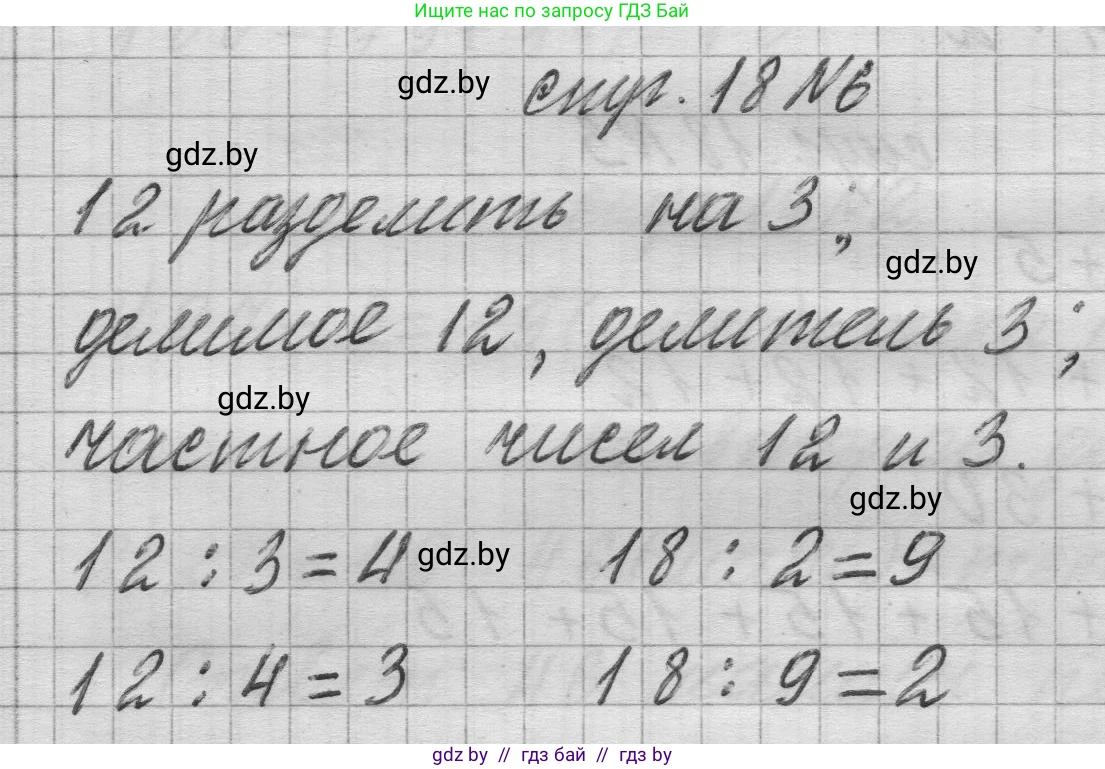 Ищите нас по запросу ГДЗ Бай
gdz.by стр. 18 №6
gdz.by
12 разделить на 3;
gdz.by
делимое 12, делитель 3;
gdz.by
частное чисел 12 и 3.
gdz.by
12 : 3 = 4 gdz.by 18 : 2 = 9
12 : 4 = 3 18 : 9 = 2
gdz.by // гдз бай // гдз by